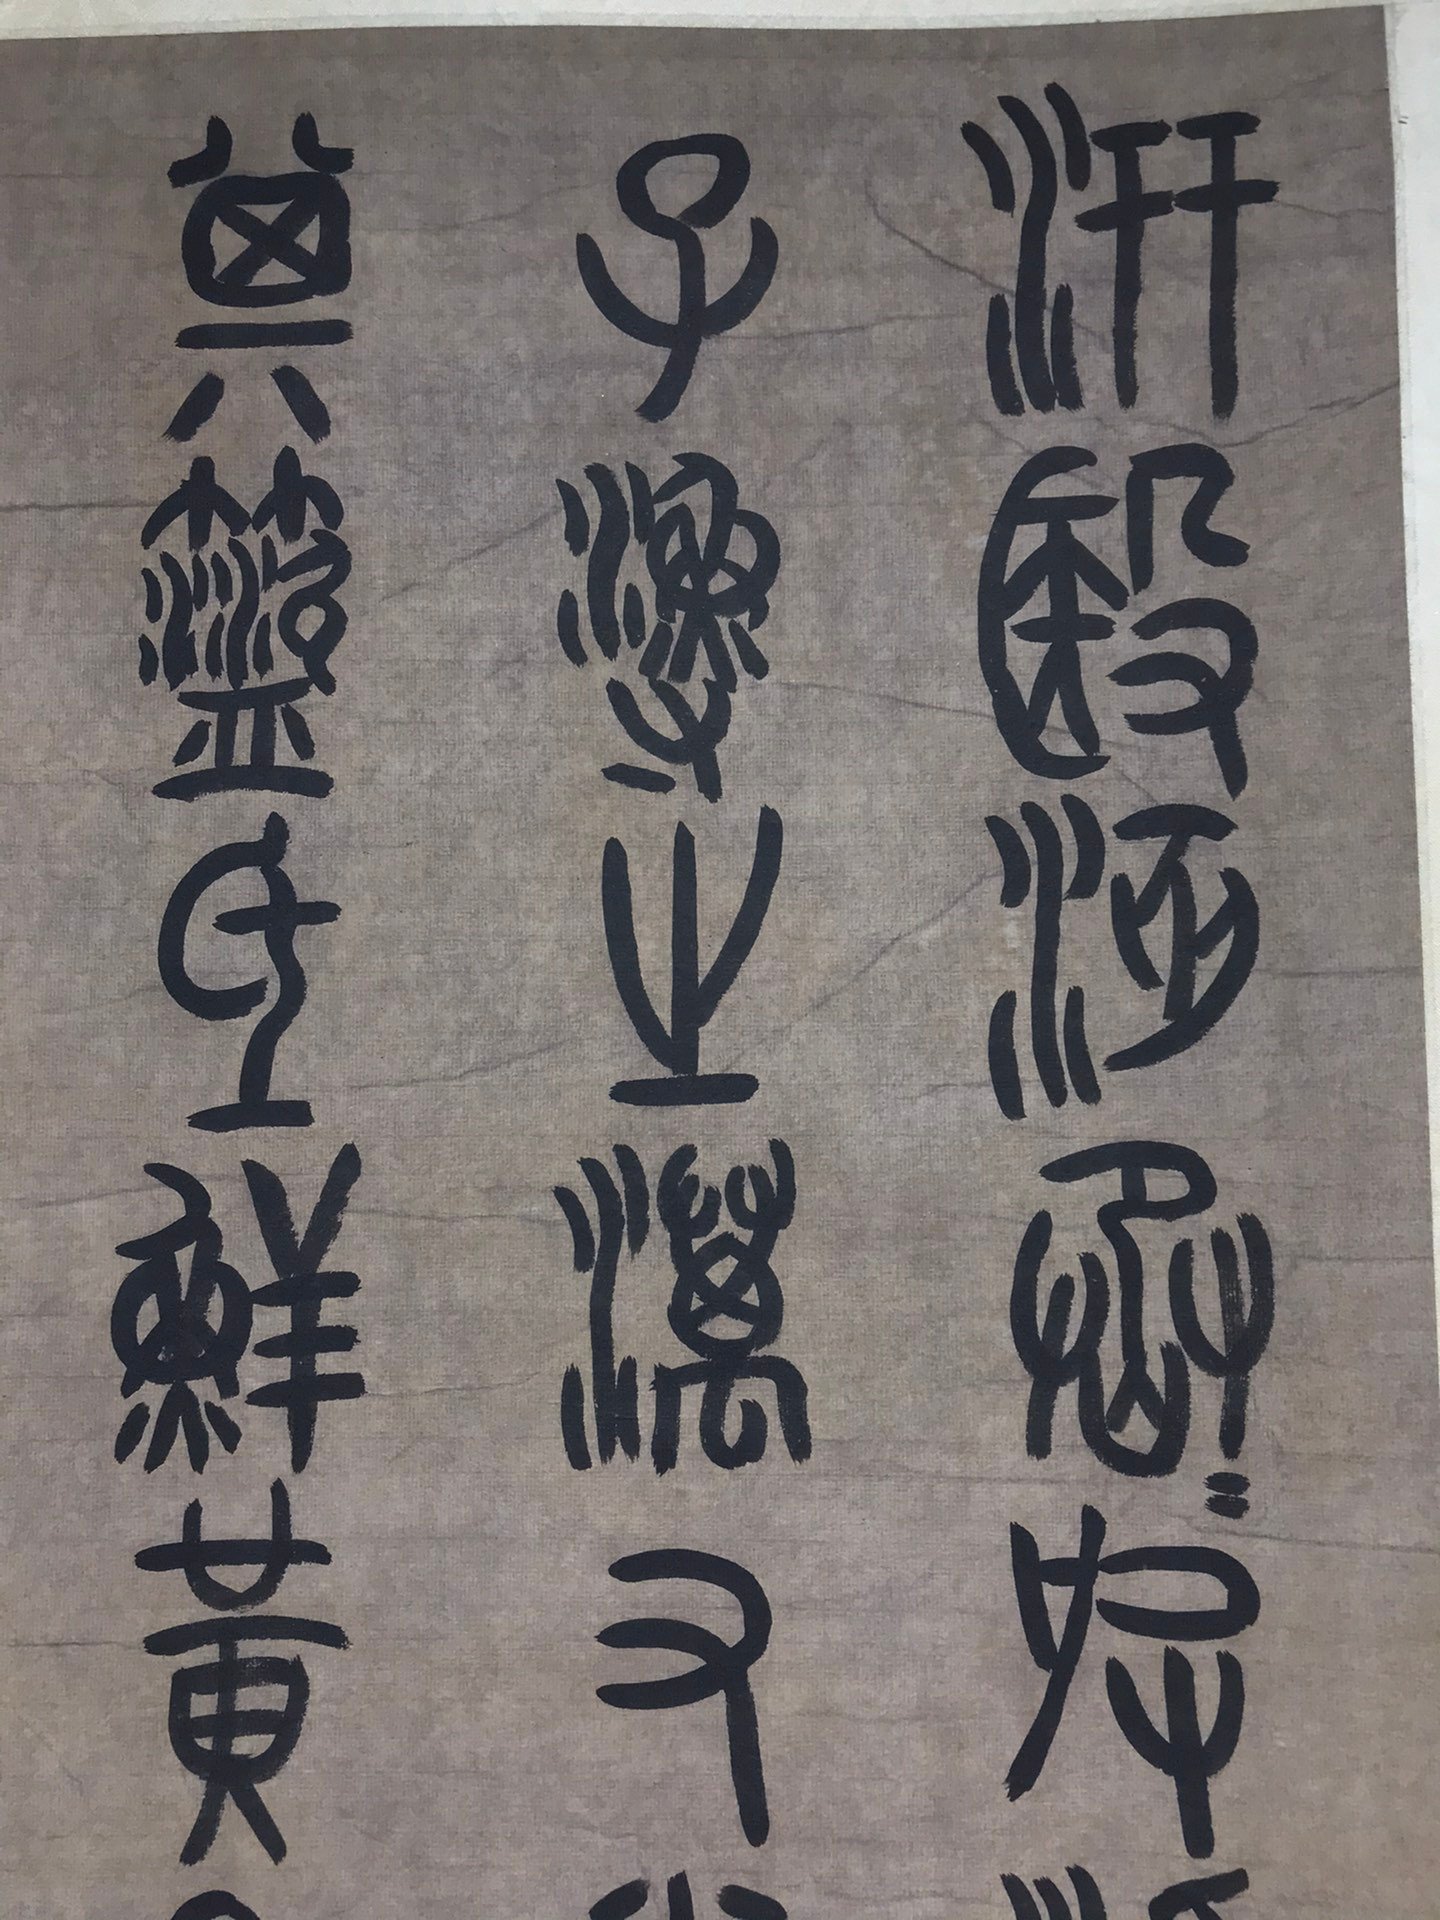 汧殹沔丞=皮
子漁之澫又
其盜氐鮮黃